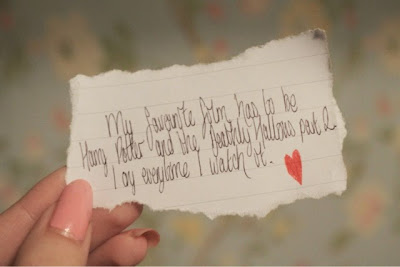 My favourite film has to be
Harry Potter and the Deathly Hallows part 2
I cry everytime I watch it.